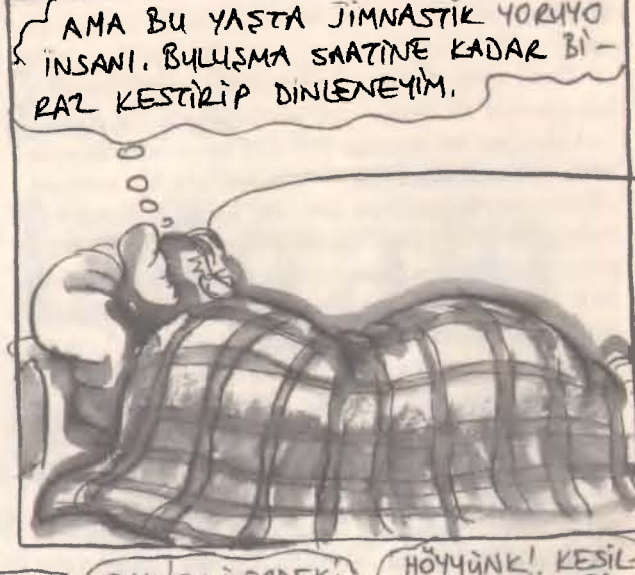 AMA BU YAŞTA JİMNASTİK YORUYO
İNSANI. BULUŞMA SAATİNE KADAR Bİ-
RAZ KESTİRİP DİNLENEYİM.
HÖYYÜNK! KESİL